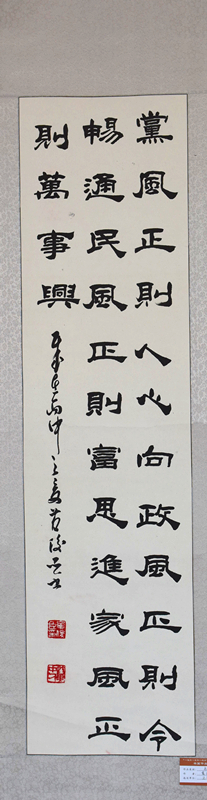 黨風正則人心向政風正則令
暢通民風正則富思進家風正
則萬事興